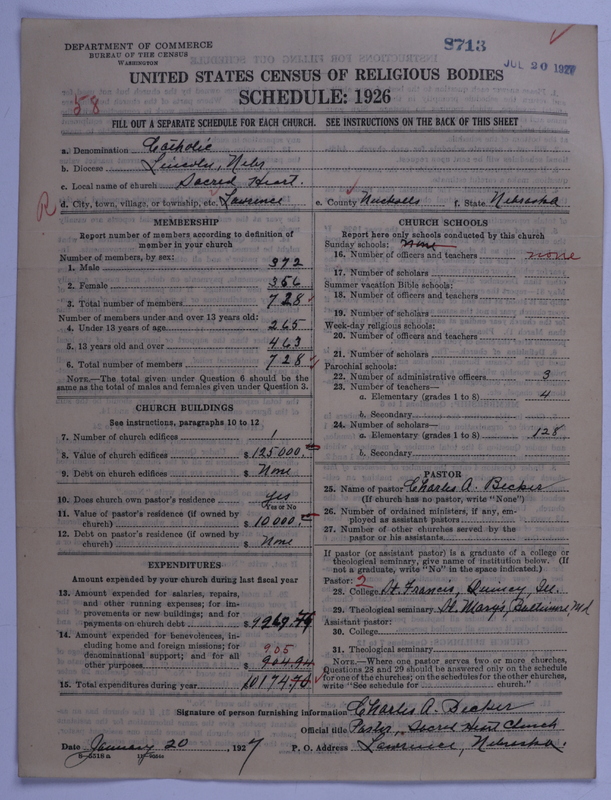 DEPARTMENT OF COMMERCE
BUREAU OF THE CENSUS
WASHINGTON
8713
JUL 20 1927
UNITED STATES CENSUS OF RELIGIOUS BODIES
SCHEDULE: 1926
58
FILL OUT A SEPARATE SCHEDULE FOR EACH CHURCH. SEE INSTRUCTIONS ON THE BACK OF THIS SHEET
a. Denomination Catholic
b. Diocese Lincoln, Nebr
c. Local name of church Sacred Heart.
R d. City, town, village, or township, etc. Lawrence e. County Nuckolls f. State Nebraska
MEMBERSHIP
Report number of members according to definition of
member in your church
Number of members, by sex:
1. Male 372
2. Female 356
3. Total number of members 728
Number of members under and over 13 years old:
4. Under 13 years of age 265
5. 13 years old and over 463
6. Total number of members 728
NOTE.—The total given under Question 6 should be the
same as the total of males and females given under Question 3.
CHURCH BUILDINGS
See instructions, paragraphs 10 to 12
7. Number of church edifices 1
8. Value of church edifices $ 125000.
9. Debt on church edifices $ None
10. Does church own pastor's residence yes
Yes or No
11. Value of pastor's residence (if owned by
church) $ 10000.
12. Debt on pastor's residence (if owned by
church) $ None
EXPENDITURES
Amount expended by your church during last fiscal year
13. Amount expended for salaries, repairs,
and other running expenses; for im-
provements or new buildings; and for
payments on church debt $
14. Amount expended for benevolences, in-
cluding home and foreign missions; for
denominational support; and for all 905
other purposes $ 904.94
15. Total expenditures during year
CHURCH SCHOOLS
Report here only schools conducted by this church
Sunday schools: none
16. Number of officers and teachers none
17. Number of scholars
Summer vacation Bible schools:
18. Number of officers and teachers
19. Number of scholars
Week-day religious schools:
20. Number of officers and teachers
21. Number of scholars
Parochial schools:
22. Number of administrative officers 3
23. Number of teachers—
a. Elementary (grades 1 to 8) 4
b. Secondary
24. Number of scholars—
a. Elementary (grades 1 to 8) 128
b. Secondary
PASTOR
25. Name of pastor Charles A. Becker
(If church has no pastor, write "None")
26. Number of ordained ministers, if any, em-
ployed as assistant pastors
27. Number of other churches served by the
pastor or his assistants
If pastor (or assistant pastor) is a graduate of a college or
theological seminary, give name of institution below. (If
not a graduate, write "No" in the space indicated.)
Pastor: 2
28. College St. Francis, Quincy, Ill.
29. Theological seminary St. Mary's, Baltimore Md
Assistant pastor:
30. College
31. Theological seminary
NOTE.—Where one pastor serves two or more churches,
Questions 28 and 29 should be answered only on the schedule
for one of the churches; on the schedules for the other churches,
write "See schedule for church."
Signature of person furnishing information Charles A. Becker
Official title Pastor, Sacred Heart Church
Date January 20, 1927 P. O. Address Lawrence, Nebraska.
8—5518a